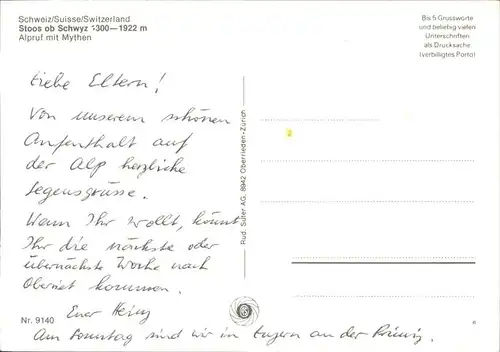 Schweiz/Suisse/Switzerland
Stoos ob Schwyz 1300—1922 m
Alpruf mit Mythen
Bis 5 Grussworte
und beliebig vielen
Unterschriften
als Drucksache
(verbilligtes Porto)
Liebe Eltern!
Von unserem schönen
Aufenthalt auf
der Alp herzliche
Segensgrüsse.
Wenn Ihr wollt, könnt
Ihr die nächste oder
übernächste Woche nach
kommen.
Euer Heinz
Am Sonntag sind wir in Luzern an der
Nr. 9140
Rud. Suter AG, 8942 Oberrieden-Zürich